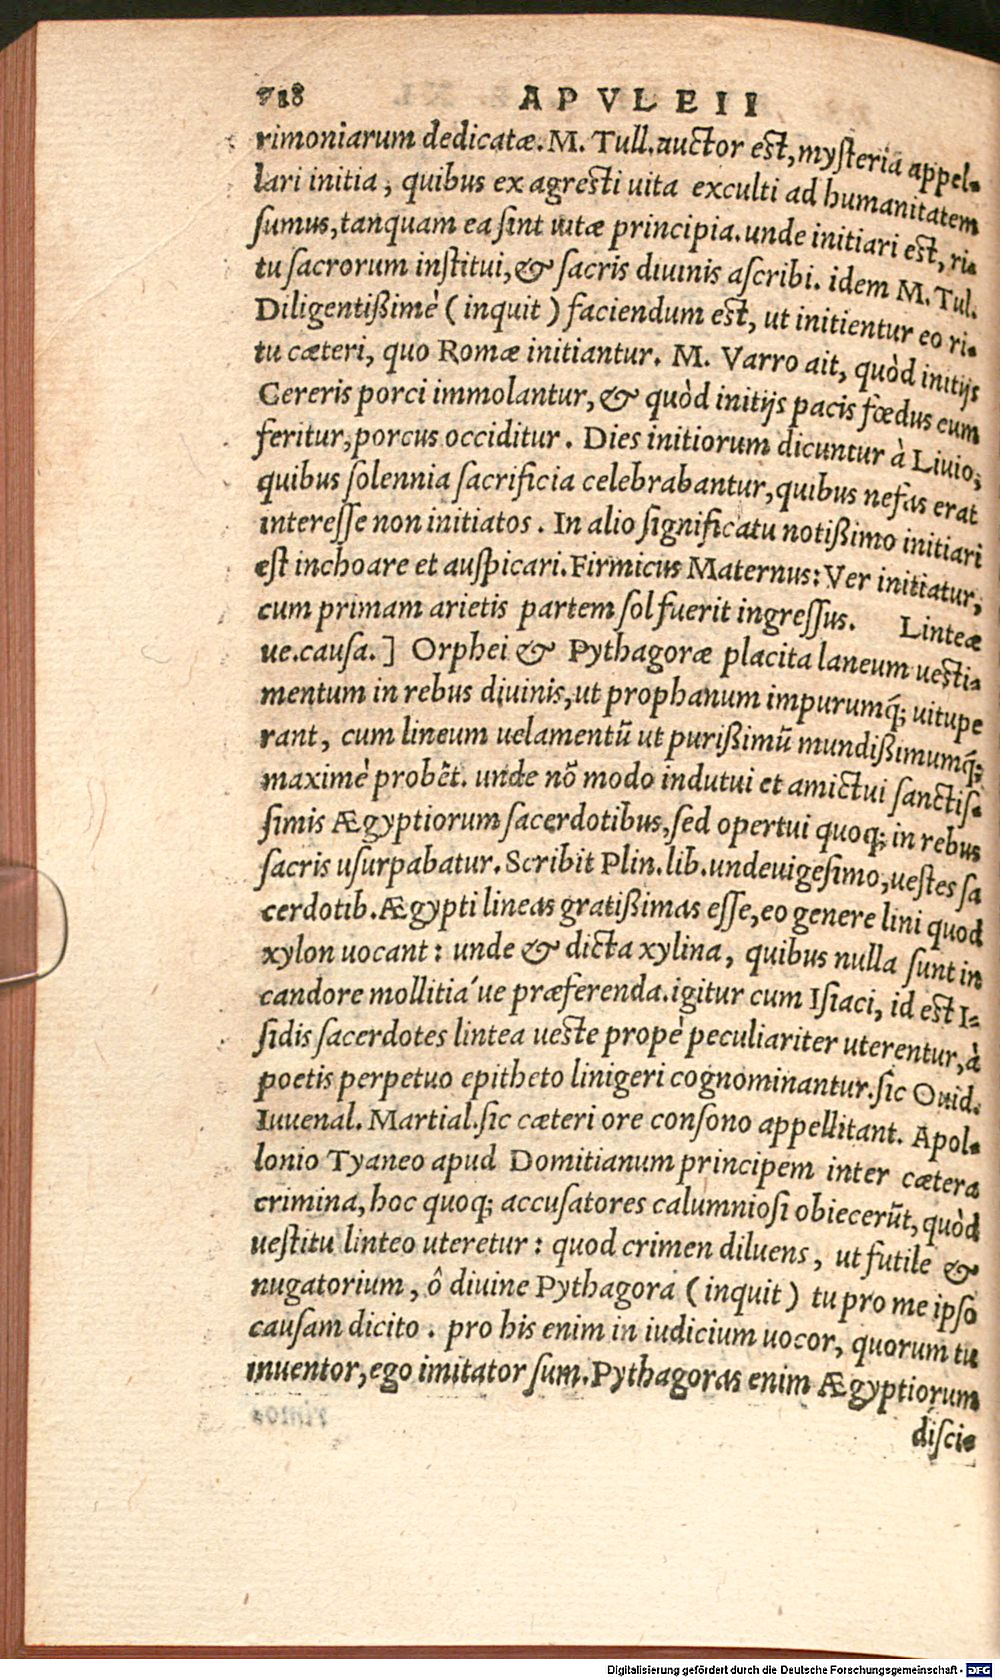 718 APVLEII
rimoniarum dedicatæ. M. Tull. auctor est, mysteria appel-
lari initia, quibus ex agresti uita exculti ad humanitatem
sumus, tanquam ea sint uitæ principia. unde initiari est, ri-
tu sacrorum institui, & sacris diuinis ascribi. idem M. Tul.
Diligentißimè (inquit) faciendum est, ut initientur eo ri-
tu cæteri, quo Romæ initiantur. M. Varro ait, quòd initijs
Cereris porci immolantur, & quòd initijs pacis fœdus cum
feritur, porcus occiditur. Dies initiorum dicuntur à Liuio,
quibus solennia sacrificia celebrabantur, quibus nefas erat
interesse non initiatos. In alio significatu notißimo initiari
est inchoare et auspicari. Firmicus Maternus: Ver initiatur,
cum primam arietis partem sol fuerit ingressus. Linteæ
ue. causa.] Orphei & Pythagoræ placita laneum uesti-
mentum in rebus diuinis, ut prophanum impurumq́; uitupe
rant, cum lineum uelamentũ ut purißimũ mundißimumq́;
maximè probẽt. unde nõ modo indutui et amictui sanctis-
simis Ægyptiorum sacerdotibus, sed opertui quoq; in rebus
sacris usurpabatur. Scribit Plin. lib. undeuigesimo, uestes sa
cerdotib. Ægypti lineas gratißimas esse, eo genere lini quod
xylon uocant: unde & dicta xylina, quibus nulla sunt in
candore mollitia´ue præferenda. igitur cum Isiaci, id est I-
sidis sacerdotes lintea ueste propè peculiariter uterentur, à
poetis perpetuo epitheto linigeri cognominantur. sic Ouid.
Iuuenal. Martial. sic cæteri ore consono appellitant. Apol-
lonio Tyaneo apud Domitianum principem inter cætera
crimina, hoc quoq; accusatores calumniosi obiecerũt, quòd
uestitu linteo uteretur: quod crimen diluens, ut futile &
nugatorium, ô diuine Pythagora (inquit) tu pro me ipso
causam dicito. pro his enim in iudicium uocor, quorum tu
inuentor, ego imitator sum. Pythagoras enim Ægyptiorum
disci-
Digitalisierung gefördert durch die Deutsche Forschungsgemeinschaft - DFG